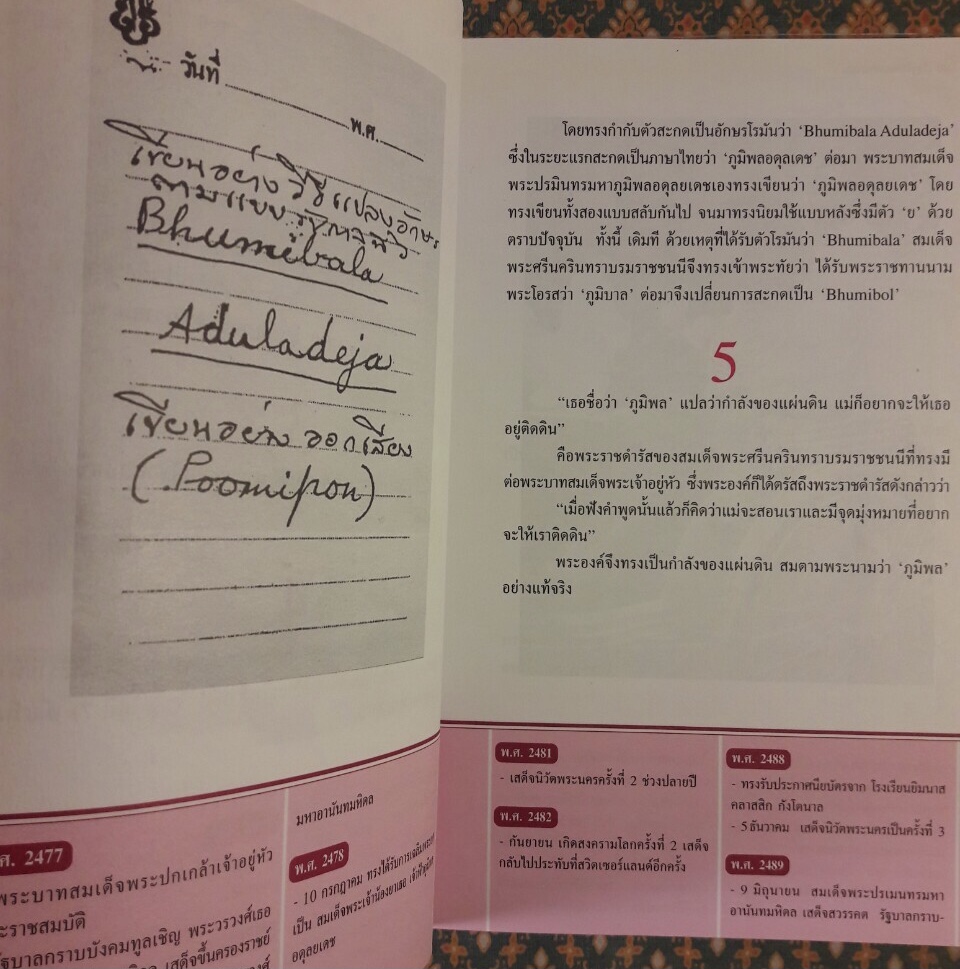 วันที่
พ.ศ.
เขียนอย่างวิธีแปลงอักษร
ตามแบบ
Bhumibala
Aduladeja
เขียนอย่าง ออกเสียง
(Poomipon)
ศ. 2477
พระบาทสมเด็จพระปกเกล้าเจ้าอยู่หัว
ะราชสมบัติ
ัฐบาลกราบบังคมทูลเชิญ พระวรวงศ์เธอ
เสด็จขึ้นครองราชย์
มหาอานันทมหิดล
พ.ศ. 2478
- 10 กรกฎาคม ทรงได้รับการเฉลิมพระยศ
เป็น สมเด็จพระเจ้าน้องยาเธอ เจ้าฟ้าภูมิพล
อดุลยเดช
โดยทรงกำกับตัวสะกดเป็นอักษรโรมันว่า ‘Bhumibala Aduladeja’
ซึ่งในระยะแรกสะกดเป็นภาษาไทยว่า ‘ภูมิพลอดุลเดช’ ต่อมา พระบาทสมเด็จ
พระปรมินทรมหาภูมิพลอดุลยเดชเองทรงเขียนว่า ‘ภูมิพลอดุลยเดช’ โดย
ทรงเขียนทั้งสองแบบสลับกันไป จนมาทรงนิยมใช้แบบหลังซึ่งมีตัว ‘ย’ ด้วย
ตราบปัจจุบัน ทั้งนี้ เดิมที ด้วยเหตุที่ได้รับตัวโรมันว่า ‘Bhumibala’ สมเด็จ
พระศรีนครินทราบรมราชชนนีจึงทรงเข้าพระทัยว่า ได้รับพระราชทานนาม
พระโอรสว่า ‘ภูมิบาล’ ต่อมาจึงเปลี่ยนการสะกดเป็น ‘Bhumibol’
5
“เธอชื่อว่า ‘ภูมิพล’ แปลว่ากำลังของแผ่นดิน แม่ก็อยากจะให้เธอ
อยู่ติดดิน”
คือพระราชดำรัสของสมเด็จพระศรีนครินทราบรมราชชนนีที่ทรงมี
ต่อพระบาทสมเด็จพระเจ้าอยู่หัว ซึ่งพระองค์ก็ได้ตรัสถึงพระราชดำรัสดังกล่าวว่า
“เมื่อฟังคำพูดนั้นแล้วก็คิดว่าแม่จะสอนเราและมีจุดมุ่งหมายที่อยาก
จะให้เราติดดิน”
พระองค์จึงทรงเป็นกำลังของแผ่นดิน สมตามพระนามว่า ‘ภูมิพล’
อย่างแท้จริง
พ.ศ. 2481
- เสด็จนิวัตพระนครครั้งที่ 2 ช่วงปลายปี
พ.ศ. 2482
- กันยายน เกิดสงครามโลกครั้งที่ 2 เสด็จ
กลับไปประทับที่สวิตเซอร์แลนด์อีกครั้ง
พ.ศ. 2488
- ทรงรับประกาศนียบัตรจาก โรงเรียนยิมนาส
คลาสสิก กังโตนาล
- 5ธันวาคม เสด็จนิวัตพระนครเป็นครั้งที่ 3
พ.ศ. 2489
- 9 มิถุนายน สมเด็จพระปรเมนทรมหา
อานันทมหิดล เสด็จสวรรคต รัฐบาลกราบ-